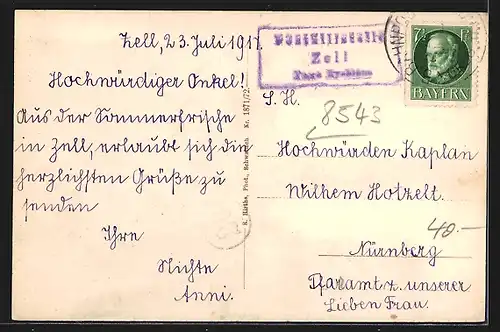 Zell, 23. Juli 1917.
Hochwürdiger Onkel!
Aus der Sommerfrische
in Zell, erlaubt sich die
herzlichsten Grüße zu
senden
Ihre
Nichte
Anni.
Nr. 1871/72.
Zell
7½
BAYERN
S. H.
8543
Hochwürden Kaplan
Wilhem Hotzelt.
Nürnberg
40.-
Pfaramt z. unserer
Lieben Frau.